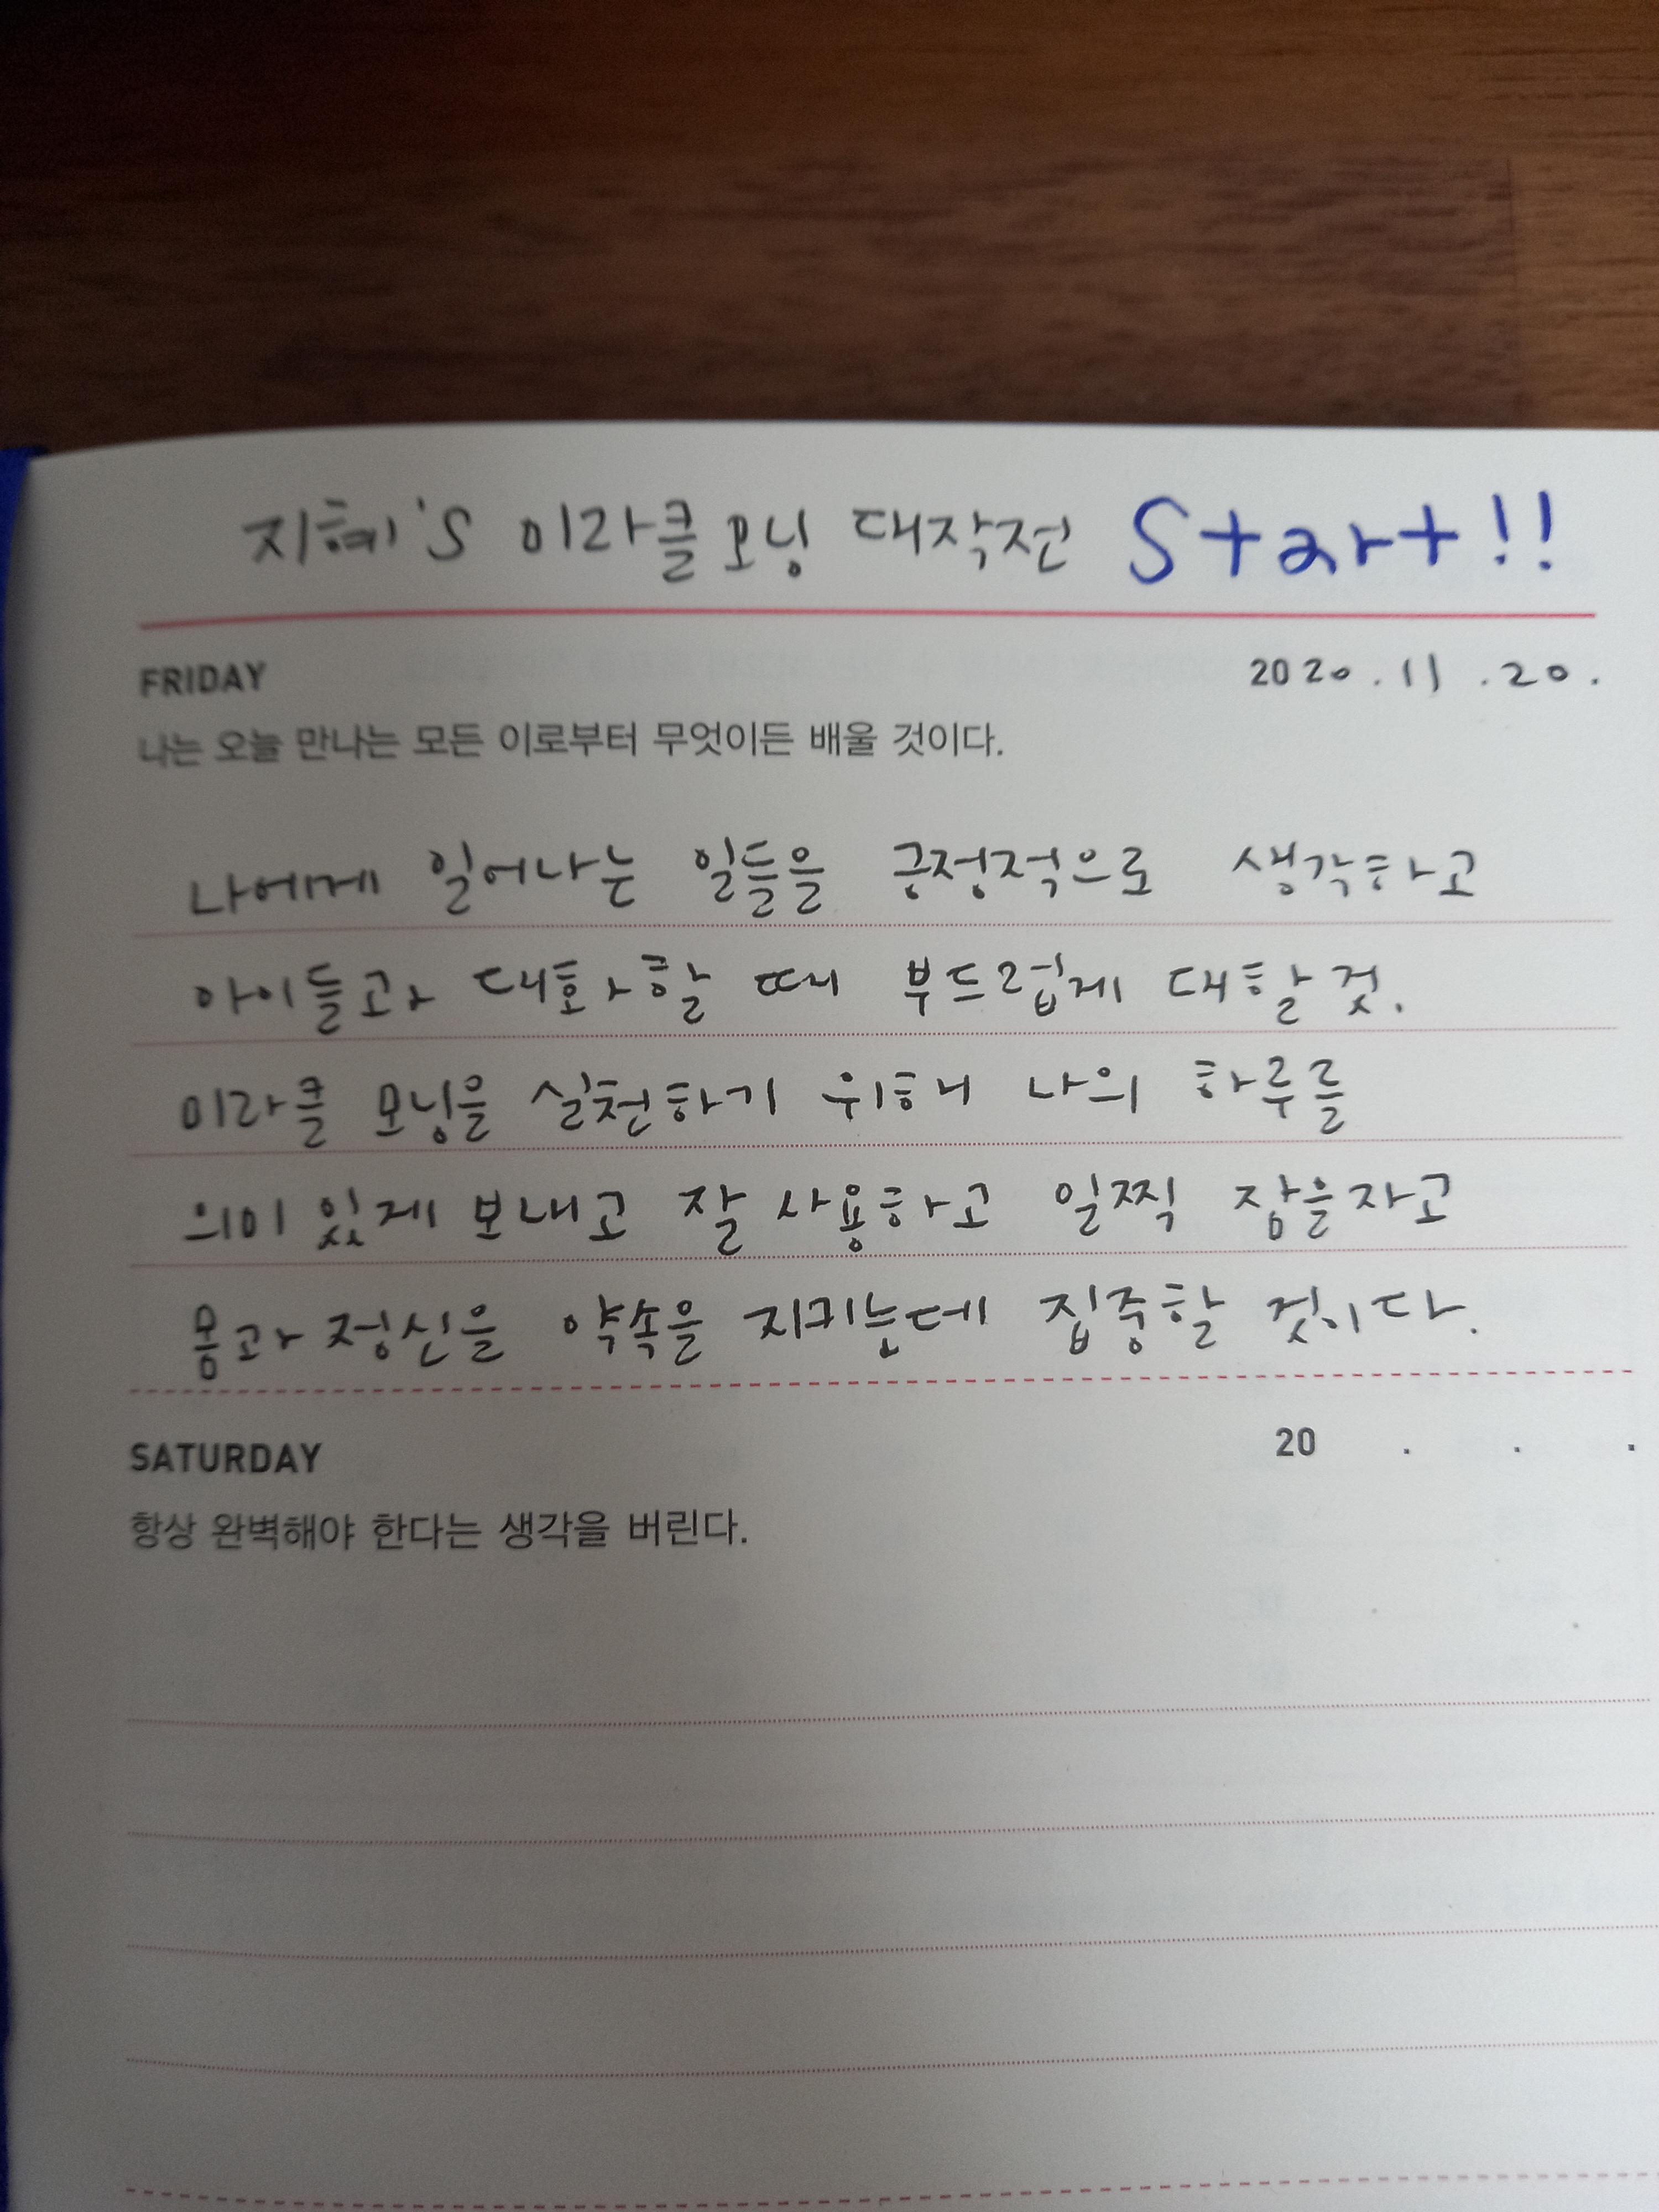 지혜's 미라클모닝 대작전 Start!!
FRIDAY 2020.11.20.
나는 오늘 만나는 모든 이로부터 무엇이든 배울 것이다.
나에게 일어나는 일들을 긍정적으로 생각하고
아이들과 대화할 때 부드럽게 대할 것.
미라클 모닝을 실천하기 위해 나의 하루를
의미 있게 보내고 잘 사용하고 일찍 잠을 자고
몸과 정신을 약속을 지키는데 집중할 것이다.
SATURDAY 20 . . .
항상 완벽해야 한다는 생각을 버린다.